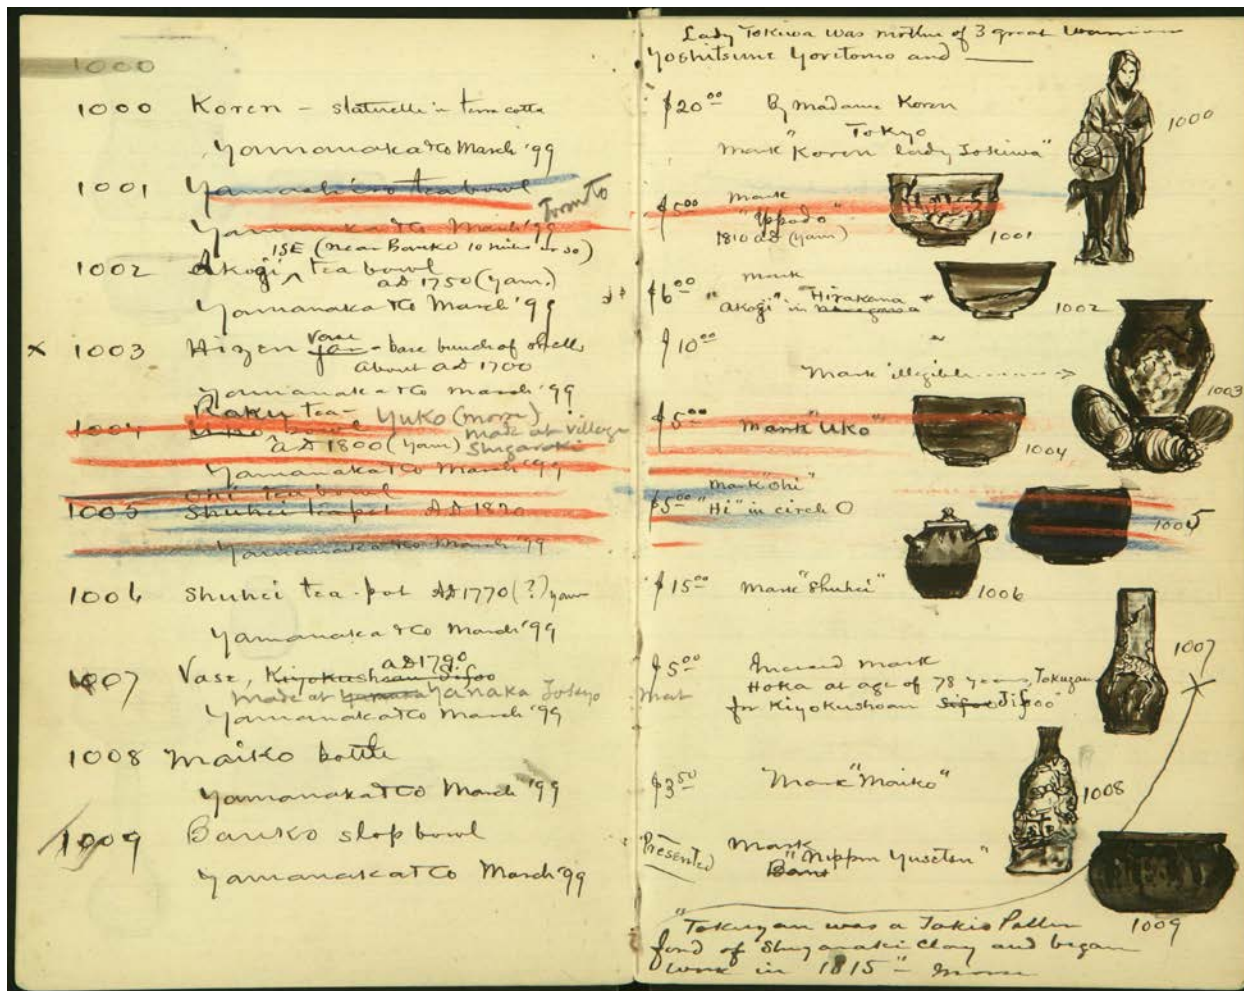 1000
1000 Koren – statuette in terra cotta
Yamanaka & Co March '99
1001 Yamashiro tea bowl
Toronto
Yamanaka & Co March '99
ISE (near Banko 10 miles or so)
1002 Akogi tea bowl
AD 1750 (yam.)
Yamanaka & Co March '99
x 1003 Hizen jar vase – base bunch of shells
About AD 1700
Yamanaka & Co March '99
Raku tea-
1004 Uko bowl Yuko (morse)
AD 1800 (yam) made at village Shigaraki
Yamanaka & Co March '99
Ohi tea bowl
1005 Shuhei teapot AD 1820
Yamanaka & Co March '99
1006 Shuhei tea-pot AD 1770 (?) yam
Yamanaka & Co March '99
AD 1790
1007 Vase, Kiyokushoan Jifoo
made at Yanaka Tokyo
Yamanaka & Co March '99
1008 Maiko bottle
Yamanaka & Co March '99
1009 Banko slop bowl
Yamanaka & Co March '99
Lady Tokiwa was mother of 3 great Warriors
Yoshitsune Yoritomo and
$20.00 By Madame Koren
Tokyo
Mark "Koren Lady Tokiwa"
1000
$5.00 Mark
"Ippodo"
1810 AD (yam)
1001
$6.00 Mark
"Akogi" in Hirakana
1002
$10.00
Mark illegible
1003
$5.00 Mark "Uko"
1004
Mark "Ohi"
$5.00 "Hi" in circle O
1005
$15.00 Mark "Shuhei"
1006
$5.00 Incised mark
Hoka at age of 78 years, Tokuzan
for Kiyokushoan Jifoo Jifoo"
1007
$3.50 Mark "Maiko"
1008
Presented Mark
"Nippon Yusetsu"
Bank
1009
"Tokuzan was a Tokio Potter
fond of Shigaraki Clay and began
work in 1815" – Morse